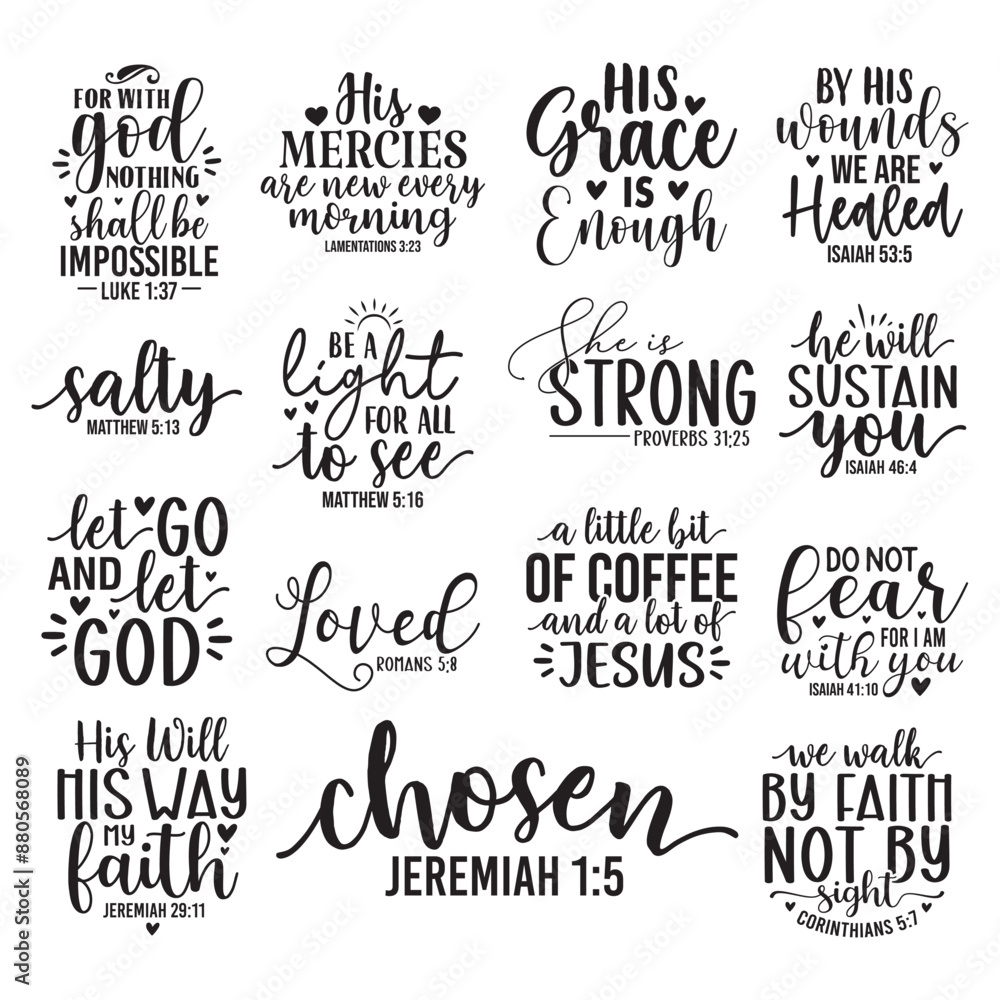 FOR WITH
god
NOTHING
shall be
IMPOSSIBLE
LUKE 1:37
His
MERCIES
are new every
morning
LAMENTATIONS 3:23
HIS
Grace
IS
Enough
BY HIS
wounds
WE ARE
Healed
ISAIAH 53:5
salty
MATTHEW 5:13
BE A
light
FOR ALL
to see
MATTHEW 5:16
She is
STRONG
PROVERBS 31:25
he will
SUSTAIN
you
ISAIAH 46:4
let GO
AND let
GOD
Loved
ROMANS 5:8
a little bit
OF COFFEE
and a lot of
JESUS
DO NOT
fear
FOR I AM
with you
ISAIAH 41:10
His Will
HIS WAY
MY
faith
JEREMIAH 29:11
chosen
JEREMIAH 1:5
we walk
BY FAITH
NOT BY
sight
CORINTHIANS 5:7
Adobe Stock | #880568089